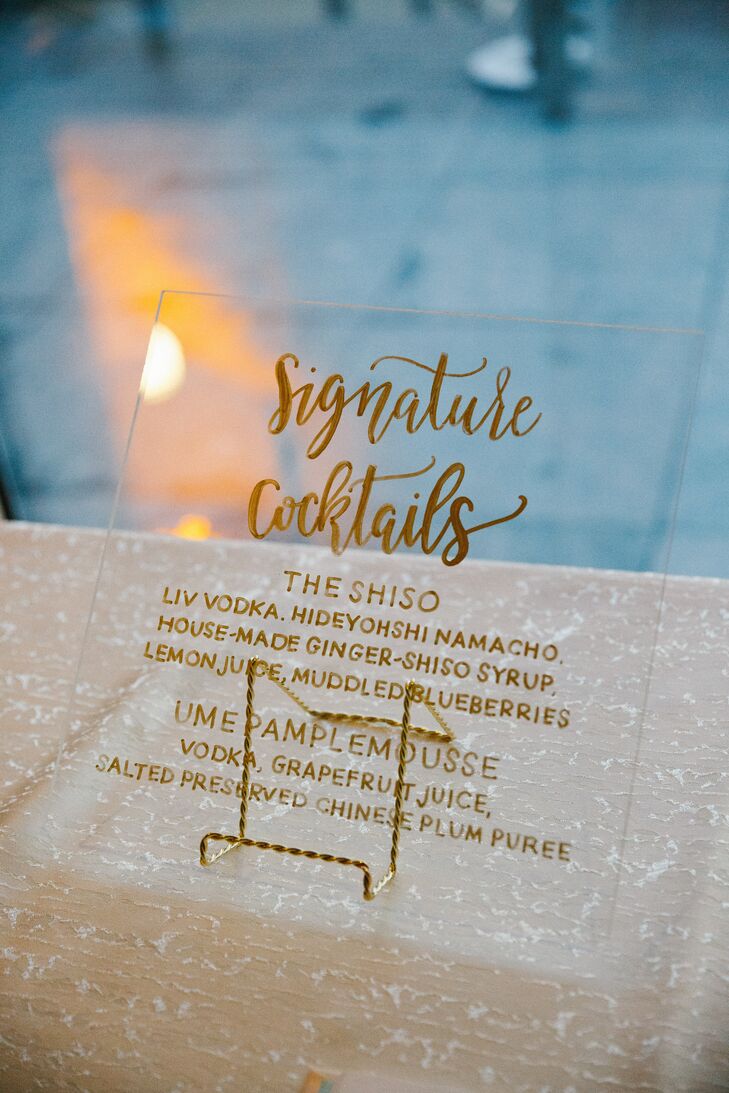 Signature
Cocktails
THE SHISO
LIV VODKA. HIDEYOHSHI NAMACHO.
HOUSE-MADE GINGER-SHISO SYRUP,
LEMON JUICE, MUDDLED BLUEBERRIES
UME PAMPLEMOUSSE
VODKA, GRAPEFRUIT JUICE,
SALTED PRESERVED CHINESE PLUM PUREE